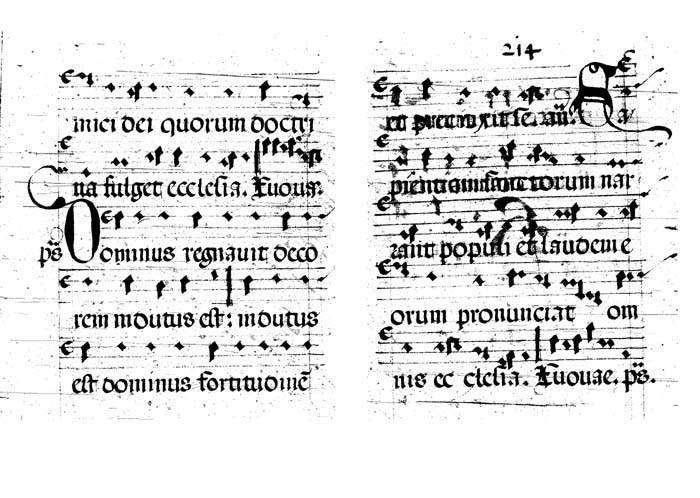 mici dei quorum doctri
na fulget ecclesia. Euouae.
ps̄ Dominus regnauit deco
rem indutus est: indutus
est dominus fortitudinē
214
et precinxit se. añ. Sa
pientiam sanctorum nar
rant populi et laudem e
orum pronunciat om
nis ec clesia. Euouae. ps̄.